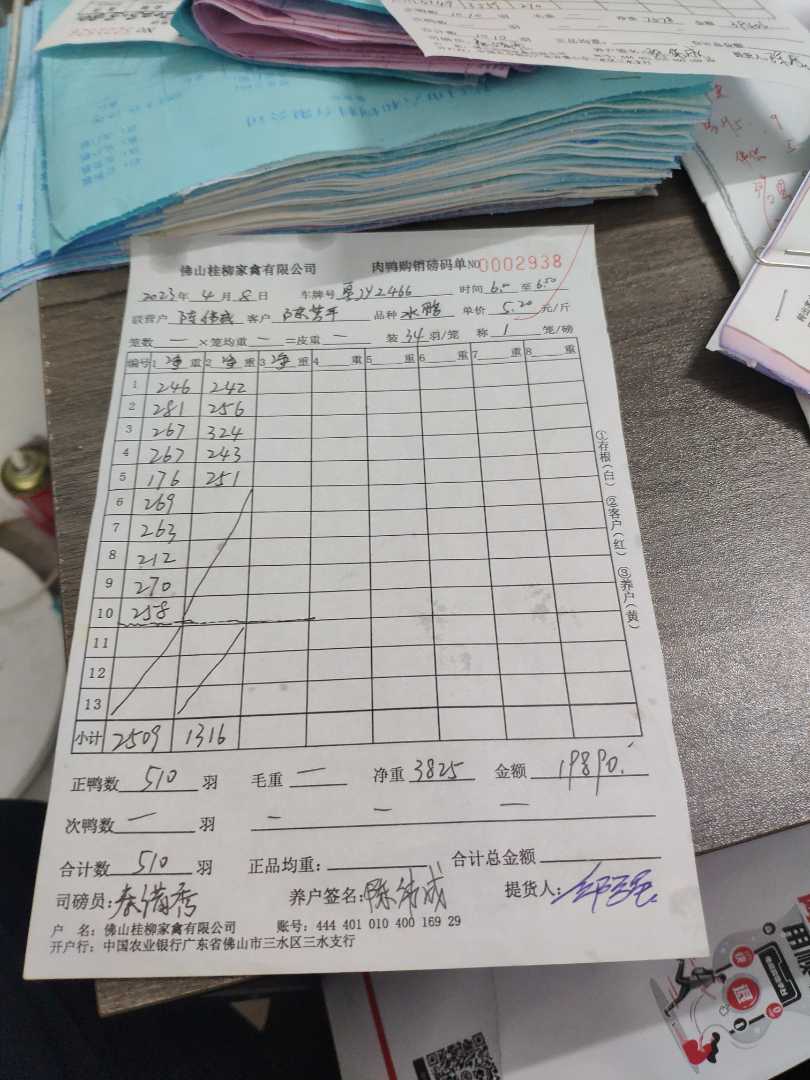 佛山桂柳家禽有限公司 肉鸭购销磅码单NO0002938
2023年 4月 8日 车牌号 粤JY2466 时间 6.00 至 6.50
联营户 陈伟成 客户 陈芳平 品种 水鸭 单价 5.20 元/斤
笼数 — ×笼均重 — =皮重 — 装 34 羽/笼 称 1 笼/磅
编号 1 净 重 2 净 重 3 净 重 4 重 5 重 6 重 7 重 8 重
1 246 242
2 281 256
3 267 324
4 267 243
5 176 251
6 269
7 263
8 212
9 270
10 258
11
12
13
小计 2509 1316
正鸭数 510 羽 毛重 — 净重 3825 金额 19890.
次鸭数 — 羽 — — —
合计数 510 羽 正品均重: 合计总金额
司磅员: 秦满秀 养户签名: 陈伟成 提货人:
户 名: 佛山桂柳家禽有限公司 账号: 444 401 010 400 169 29
开户行: 中国农业银行广东省佛山市三水区三水支行
①存根(白) ②客户(红) ③养户(黄)